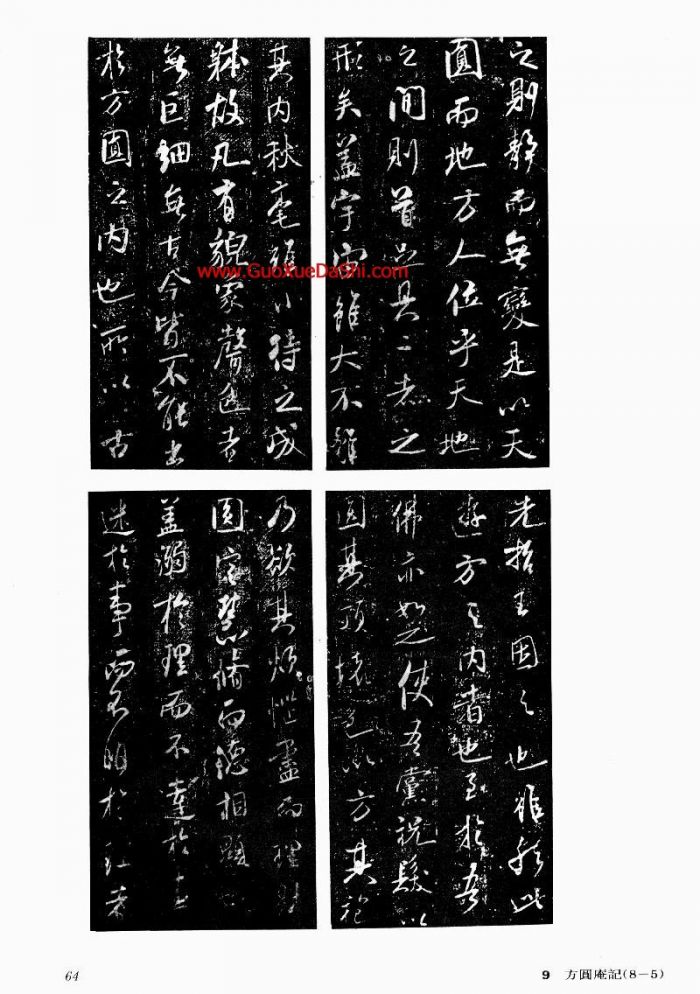 之則靜而無變是以天
圓而地方人位乎天地
之間則首足具二者之
形矣蓋宇宙雖大不離
其內秋毫雖小待之成
體故凡有貌象聲色者
無巨細無古今皆不能出
於方圓之內也所以古
先哲王因之也雖然此
遊方之內者也至於吾
佛亦如之使吾黨祝髮以
圓其頂壞色以方其袍
乃欲其煩惱盡而理體
圓定慧脩而德相顯
蓋溺於理而不達於事
迷於事而不明於理者
www.GuoXueDaShi.com
64
9 方圓庵記(8−5)